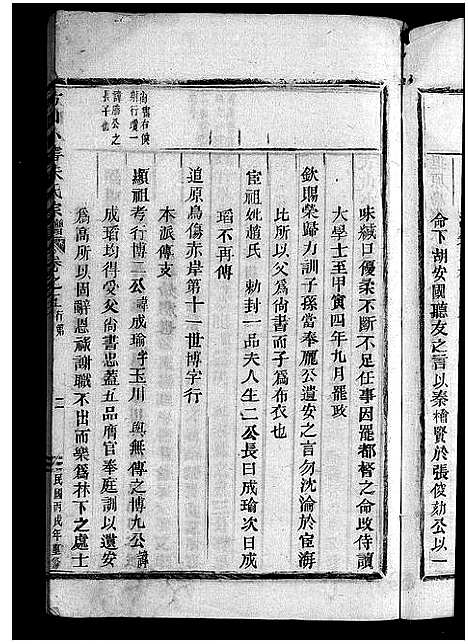 命下胡安國聽友之言以秦檜賢於張俊劾公以一
味緘口優柔不斷不足仕事因罷都督之命改侍讀
大學士至甲寅四年九月罷政
欽賜榮歸力訓子孫當奉龐公遺安之言勿沈淪於宦海
比所以父爲尙書而子爲布衣也
宦祖妣趙氏　勅封一品夫人生二公長曰成瑜次曰成
瑫不再傳
追原烏傷赤岸第十一世博字行
本派傳支
尙書右僕
射行瓊一
諱勝公之
長子也
顯祖考行博二公諱成瑜字玉川與無傳之博九公諱
成瑫均得受父尙書忠蓋五品廕官奉庭訓以遺安
爲高所以固辭恩祿謝職不出而樂爲林下之處士
朱氏宗譜
民國丙戌年重修